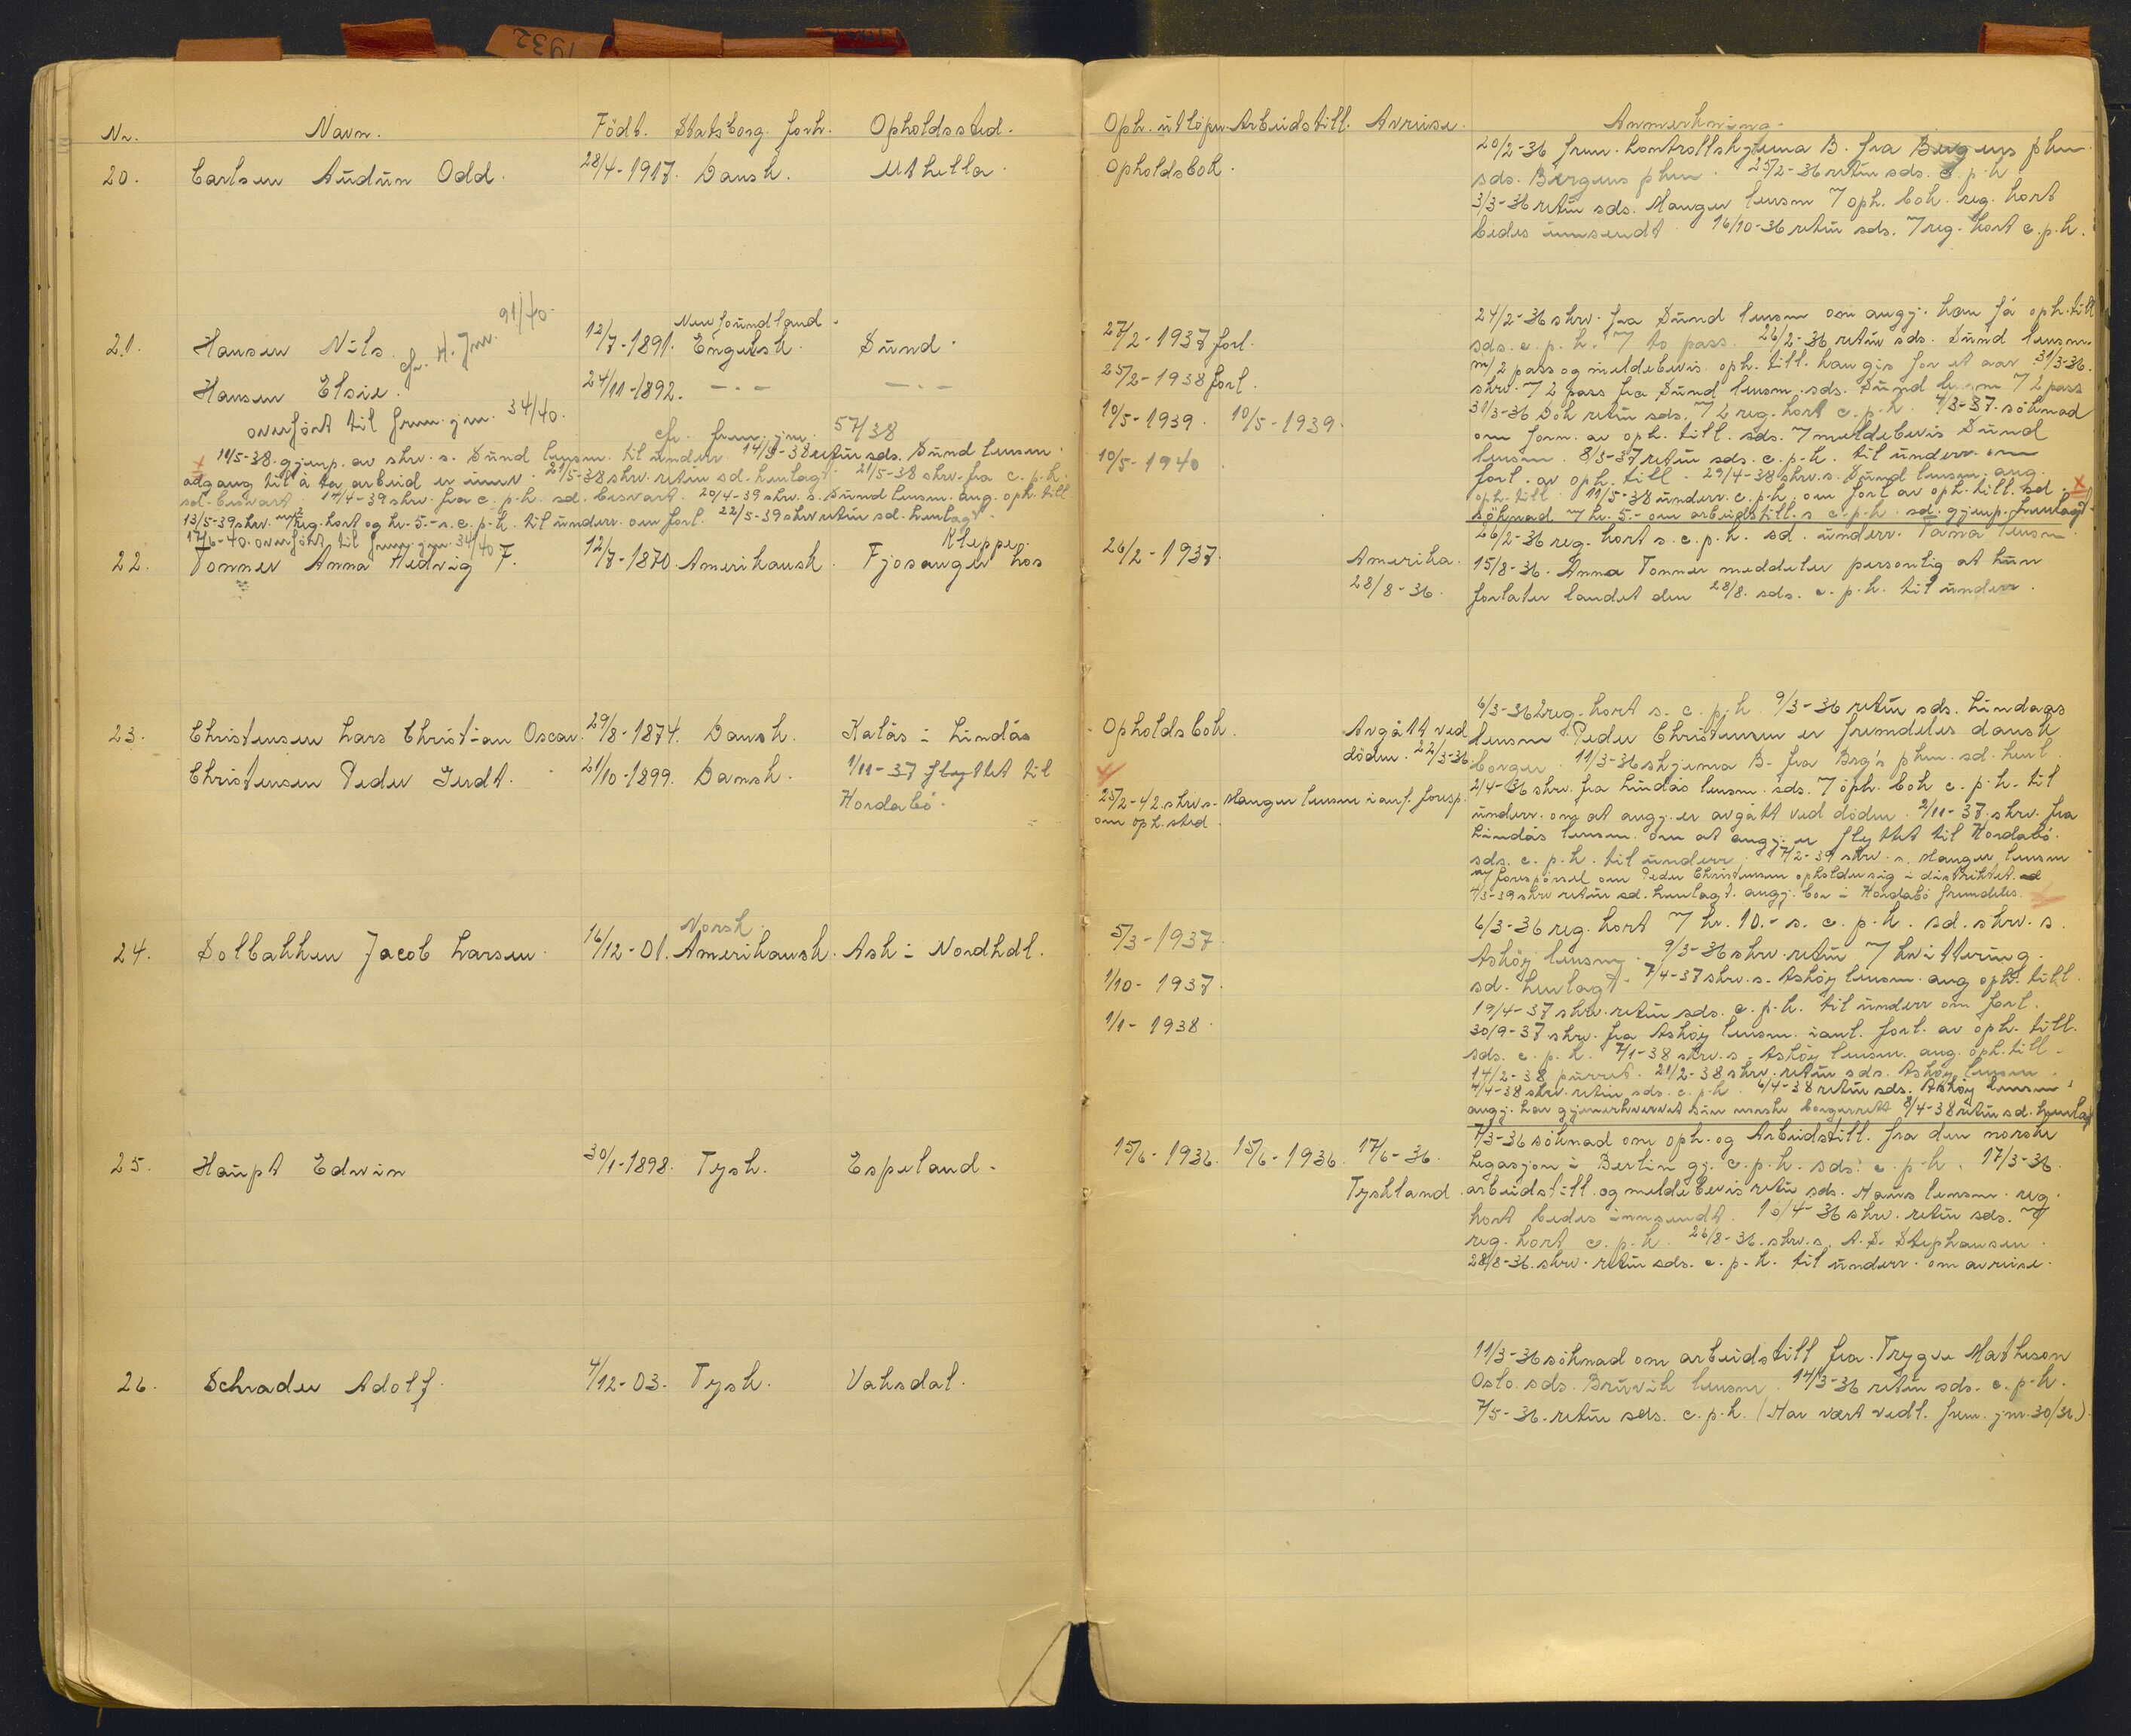 1932
Nr. Navn. Födt. Statsborg. forh. Opholdssted.
Oph. utlöper. Arbeidstill. Avreise. Anmerkning.
20. Carlsen Audun Odd. 28/4-1917. Dansk.
Opholdsbok.
20/2-36 frem. kontrollskjema B. fra Bergens pkm.
sds. Bergens pkm. 25/2-36 retur sds. c.p.k
3/3-36 retur sds. Manger lensm 7 oph. bok. reg. kort
bedes innsendt. 16/10-36 retur sds. 7 reg. kort c.p.k.
21. Hansen Nils. cfr. H. Jnr. 91/40.
12/7-1891. New foundland. Engelsk. Sund.
Hansen Elsie. 24/11-1892. -.- -.-
overfört til frem. jnr. 34/40.
cfr. frem. jnr. 57/38
x 11/5-38. gjenp. av skrv. s. Sund lensm. til underr. 14/5-38 retur sds. Sund lensm.
adgang til å ta arbeid er 21/5-38 skrv. retur sd. henlagt. 21/5-38 skrv. fra c.p.k.
sd. besvart. 17/4-39 skrv. fra c.p.k. sd. besvart. 20/4-39 skrv. s. Sund lensm. ang. oph. till.
13/5-39 skrv. m/2 reg. kort og kr. 5.- s. c.p.k. til underr. om forl. 22/5-39 skrv retur sd. henlagt.
17/6-40. overfört til frem. jnr. 34/40
27/2-1937 forl.
25/2-1938 forl.
10/5-1939. 10/5-1939.
10/5-1940
24/2-36 skrv. fra Sund lensm om angj. kan få oph. till
sds. c.p.k. 7 to pass. 26/2-36 retur sds. Sund lensm.
m/2 pass og meldebevis oph. till. kan gis for et aar 31/3-36.
skrv. 7 2 pass fra Sund lensm. sds. Sund lensm 7 2 pass
31/3-36 Dok retur sds. 7 2 reg. kort c.p.k. 4/3-37. söknad
om forn. av oph. till. sds. 7 meldebevis Sund
lensm. 8/3-37 retur sds. c.p.k. til underr. om
forl. av oph. till. 29/4-38 skrv. s. Sund lensm. ang.
oph. till. 11/5-38 underr. c.p.k. om forl av oph. till. sd. x
söknad 7 kr. 5.- om arbeidstill. s c.p.k. sd. gjenp. henlagt
22. Tonner Anna Hedvig F. 12/7-1870. Amerikansk. Fjosanger hos
Klepper.
26/2-1937. Amerika.
28/8-36.
26/2-36 reg. kort s. c.p.k. sd. underr. Fana lensm.
15/8-36. Anna Tonner meddeler personlig at hun
forlater landet den 28/8. sds. c.p.k. til underr.
23. Christensen Lars Christian Oscar. 29/8-1874. Dansk. Kalås i Lindås
Christensen Peder Gerdt. 21/10-1899. Dansk. 1/11-37 flyttet til
Hordabö.
Opholdsbok. Avgått ved
döden. 22/3-36.
25/2-42. skrv s. Manger lensm i anl. foresp.
om oph. sted.
6/3-36 2 reg. kort s. c.p.k. 9/3-36 retur sds. Lindaas
lensm Peder Christensen er fremdeles dansk
borger. 11/3-36 skjema B. fra Brg's pkm. sd. henl.
2/4-36 skrv. fra Lindås lensm. sds. 7 oph. bok c.p.k. til
underr. om at angj. er avgått ved döden. 2/11-37. skrv. fra
Lindås lensm. om at angj. er flyttet til Hordabö.
sds. c.p.k. til underr. 7/2-39 skrv. s. Manger lensm
m/ forespörsel om Peder Christensen opholder sig i distriktet. sd
4/3-39 skrv retur sd. henlagt. angj. bor i Hordabö fremdeles.
24. Solbakken Jacob Larsen. 16/12-01. Norsk. Amerikansk. Ask i Nordhdl.
5/3-1937
1/10-1937.
1/1-1938.
6/3-36 reg. kort 7 kr. 10.- s. c.p.k. sd. skrv. s.
Asköy lensm. 9/3-36 skrv. retur 7 kvittering.
sd. henlagt. 7/4-37 skrv. s. Asköy lensm. ang oph. till.
19/4-37 skrv. retur sds. c.p.k. til underr om forl.
30/9-37 skrv. fra Asköy lensm. i anl. forl. av oph. till.
sds. c.p.k. 7/1-38 skrv. s. Asköy lensm. ang. oph. till.
14/2-38 purret. 21/2-38 skrv. retur sds. Asköy lensm.
4/4-38 skrv. retur sds. c.p.k. 6/4-38 retur sds. Asköy lensm.
angj. har gjenerhvervet sin norske borgerrett 8/4-38 retur sd. henlagt
25. Haupt Edwin 30/1-1898. Tysk. Espeland.
15/6-1936. 15/6-1936. 17/6-36.
Tyskland.
7/3-36 söknad om oph. og Arbeidstill. fra den norske
Legasjon i Berlin gj. c.p.k. sds. c.p.k. 17/3-36.
arbeidstill. og meldebevis retur sds. Haus lensm. reg.
kort bedes innsendt. 10/4-36 skrv. retur sds. 7
reg. kort c.p.k. 26/8-36. skrv. s. A.S. Stephansen.
28/8-36. skrv. retur sds. c.p.k. til underr. om avreise.
26. Schrader Adolf. 4/12-03. Tysk. Vaksdal.
11/3-36 söknad om arbeidstill fra. Trygve Matheson
Oslo. sds. Bruvik lensm. 14/3-36 retur sds. c.p.k.
7/5-36. retur sds. c.p.k. (Har vært vedl. frem. jnr. 30/36).